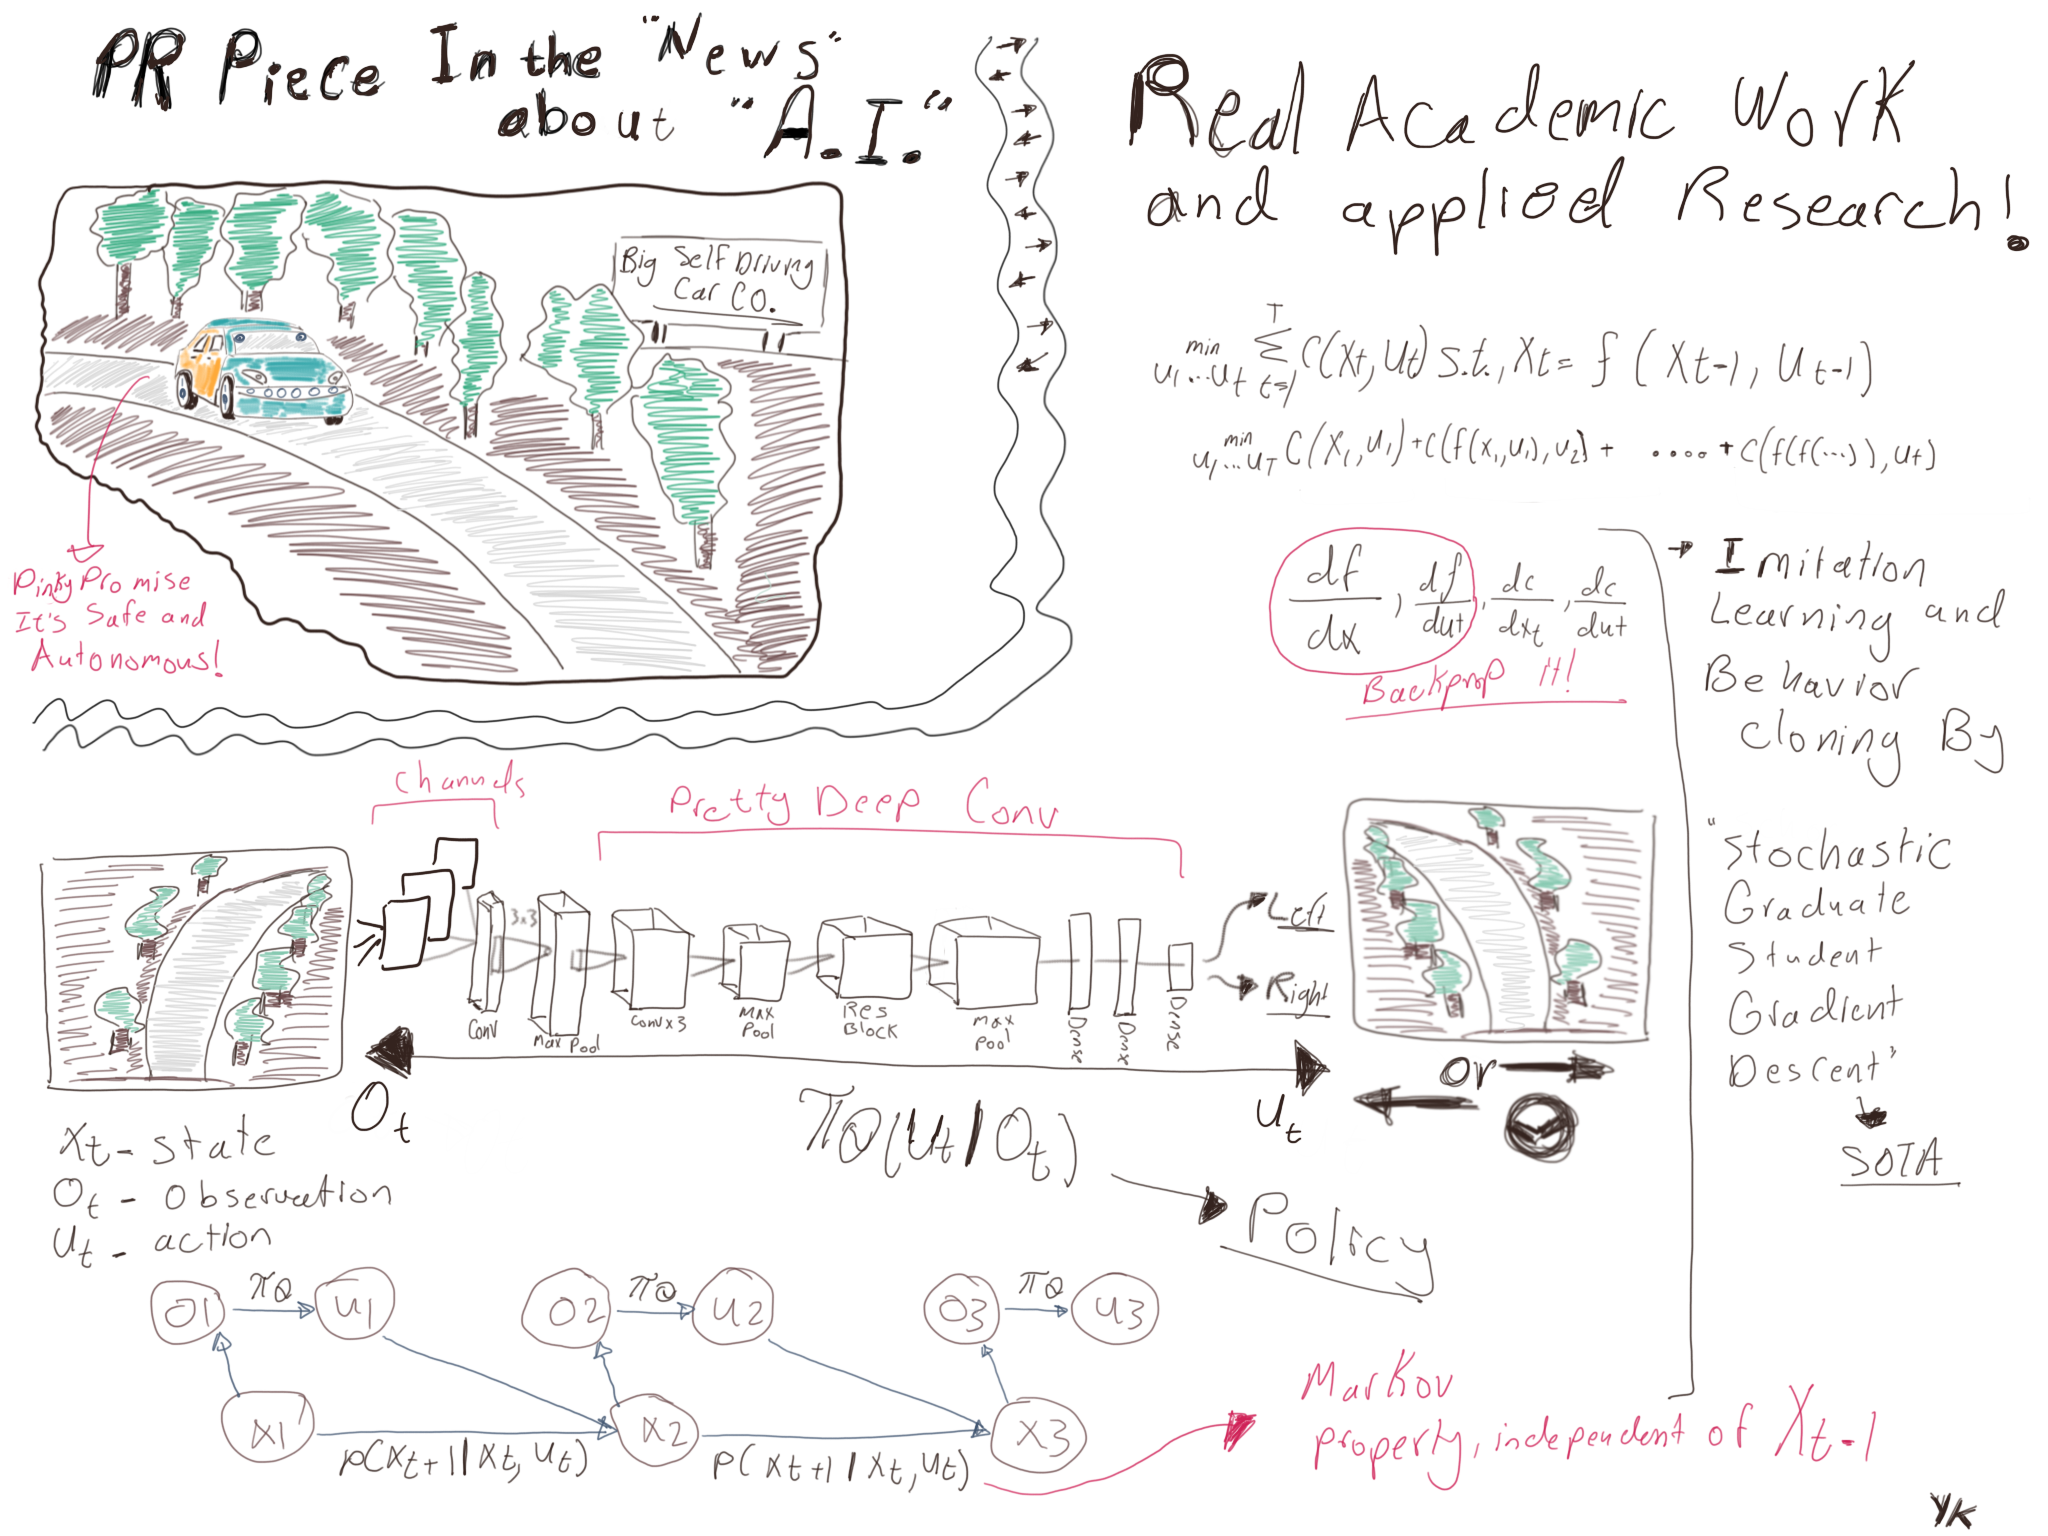 PR Piece In the "News"
about "A.I."
Big Self Driving
Car CO.
Pinky Promise
It's Safe and
Autonomous!
Real Academic Work
and applied Research!
min u1...ut T Σ t=1 C(Xt, Ut) s.t., Xt = f(Xt-1, Ut-1)
min u1...uT C(X1, u1) + C(f(x1, u1), u2) + .... + C(f(f(...)), ut)
df/dx, df/dut, dc/dxt, dc/dut
Backprop it!
→ Imitation
Learning and
Behavior
Cloning By
"Stochastic
Graduate
Student
Gradient
Descent"
SOTA
Channels
Pretty Deep Conv
3x3
Conv
Max Pool
Conv x 3
Max
Pool
Res
Block
Max
Pool
Dense
Dense
Dense
Left
Right
or
Ot
πθ(ut|Ot)
ut
Policy
Xt - state
Ot - Observation
Ut - action
O1 πθ u1
O2 πθ u2
O3 πθ u3
X1
X2
X3
p(Xt+1|Xt, Ut)
p(Xt+1|Xt, Ut)
Markov
property, independent of Xt-1
YK